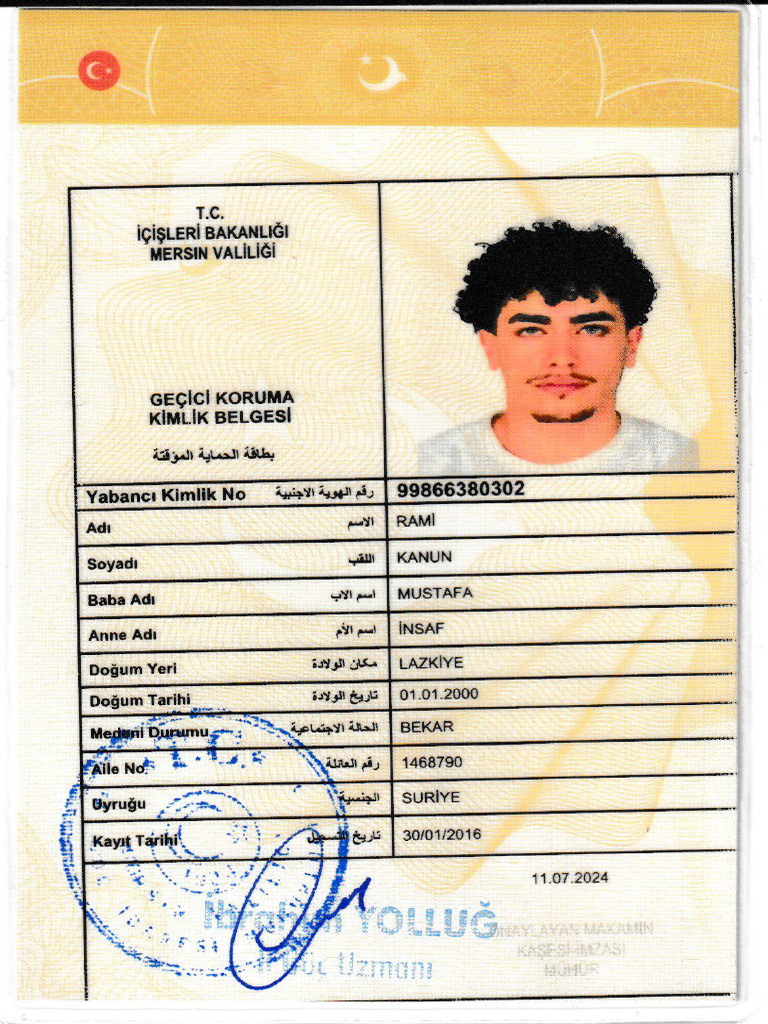 T.C.
İÇİŞLERİ BAKANLIĞI
MERSIN VALİLİĞİ
GEÇİCİ KORUMA
KİMLİK BELGESİ
بطاقة الحماية المؤقتة
Yabancı Kimlik No رقم الهوية الاجنبية 99866380302
Adı الاسم RAMİ
Soyadı اللقب KANUN
Baba Adı اسم الاب MUSTAFA
Anne Adı اسم الأم İNSAF
Doğum Yeri مكان الولادة LAZKİYE
Doğum Tarihi تاريخ الولادة 01.01.2000
Medeni Durumu الحالة الاجتماعية BEKAR
Aile No رقم العائلة 1468790
Uyruğu الجنسية SURİYE
Kayıt Tarihi تاريخ التسجيل 30/01/2016
11.07.2024
T.C.
İbrahim YOLLUĞ
İl Göç Uzmanı
ONAYLAYAN MAKAMIN
KAŞESİ-İMZASI
MÜHÜR